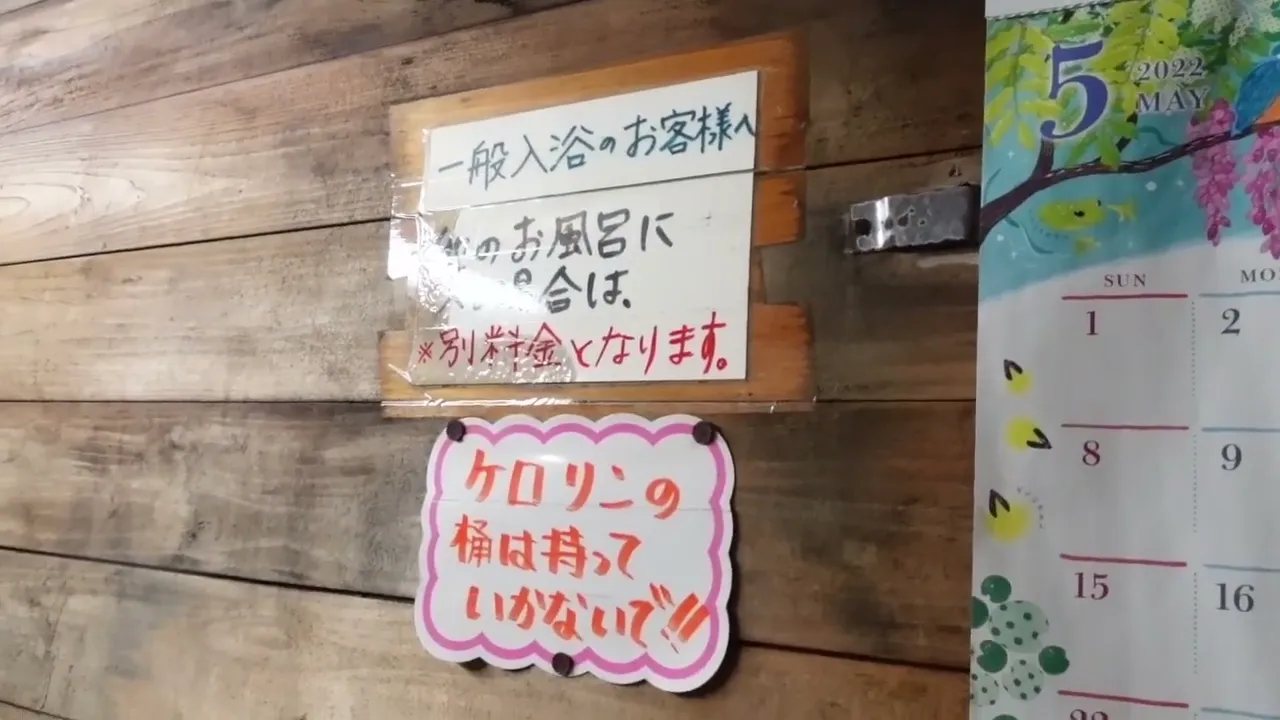 一般入浴のお客様へ
のお風呂に
場合は、
※別料金となります。
ケロリンの
桶は持って
いかないで!!
5
2022
MAY
SUN
MO
1
2
8
9
15
16